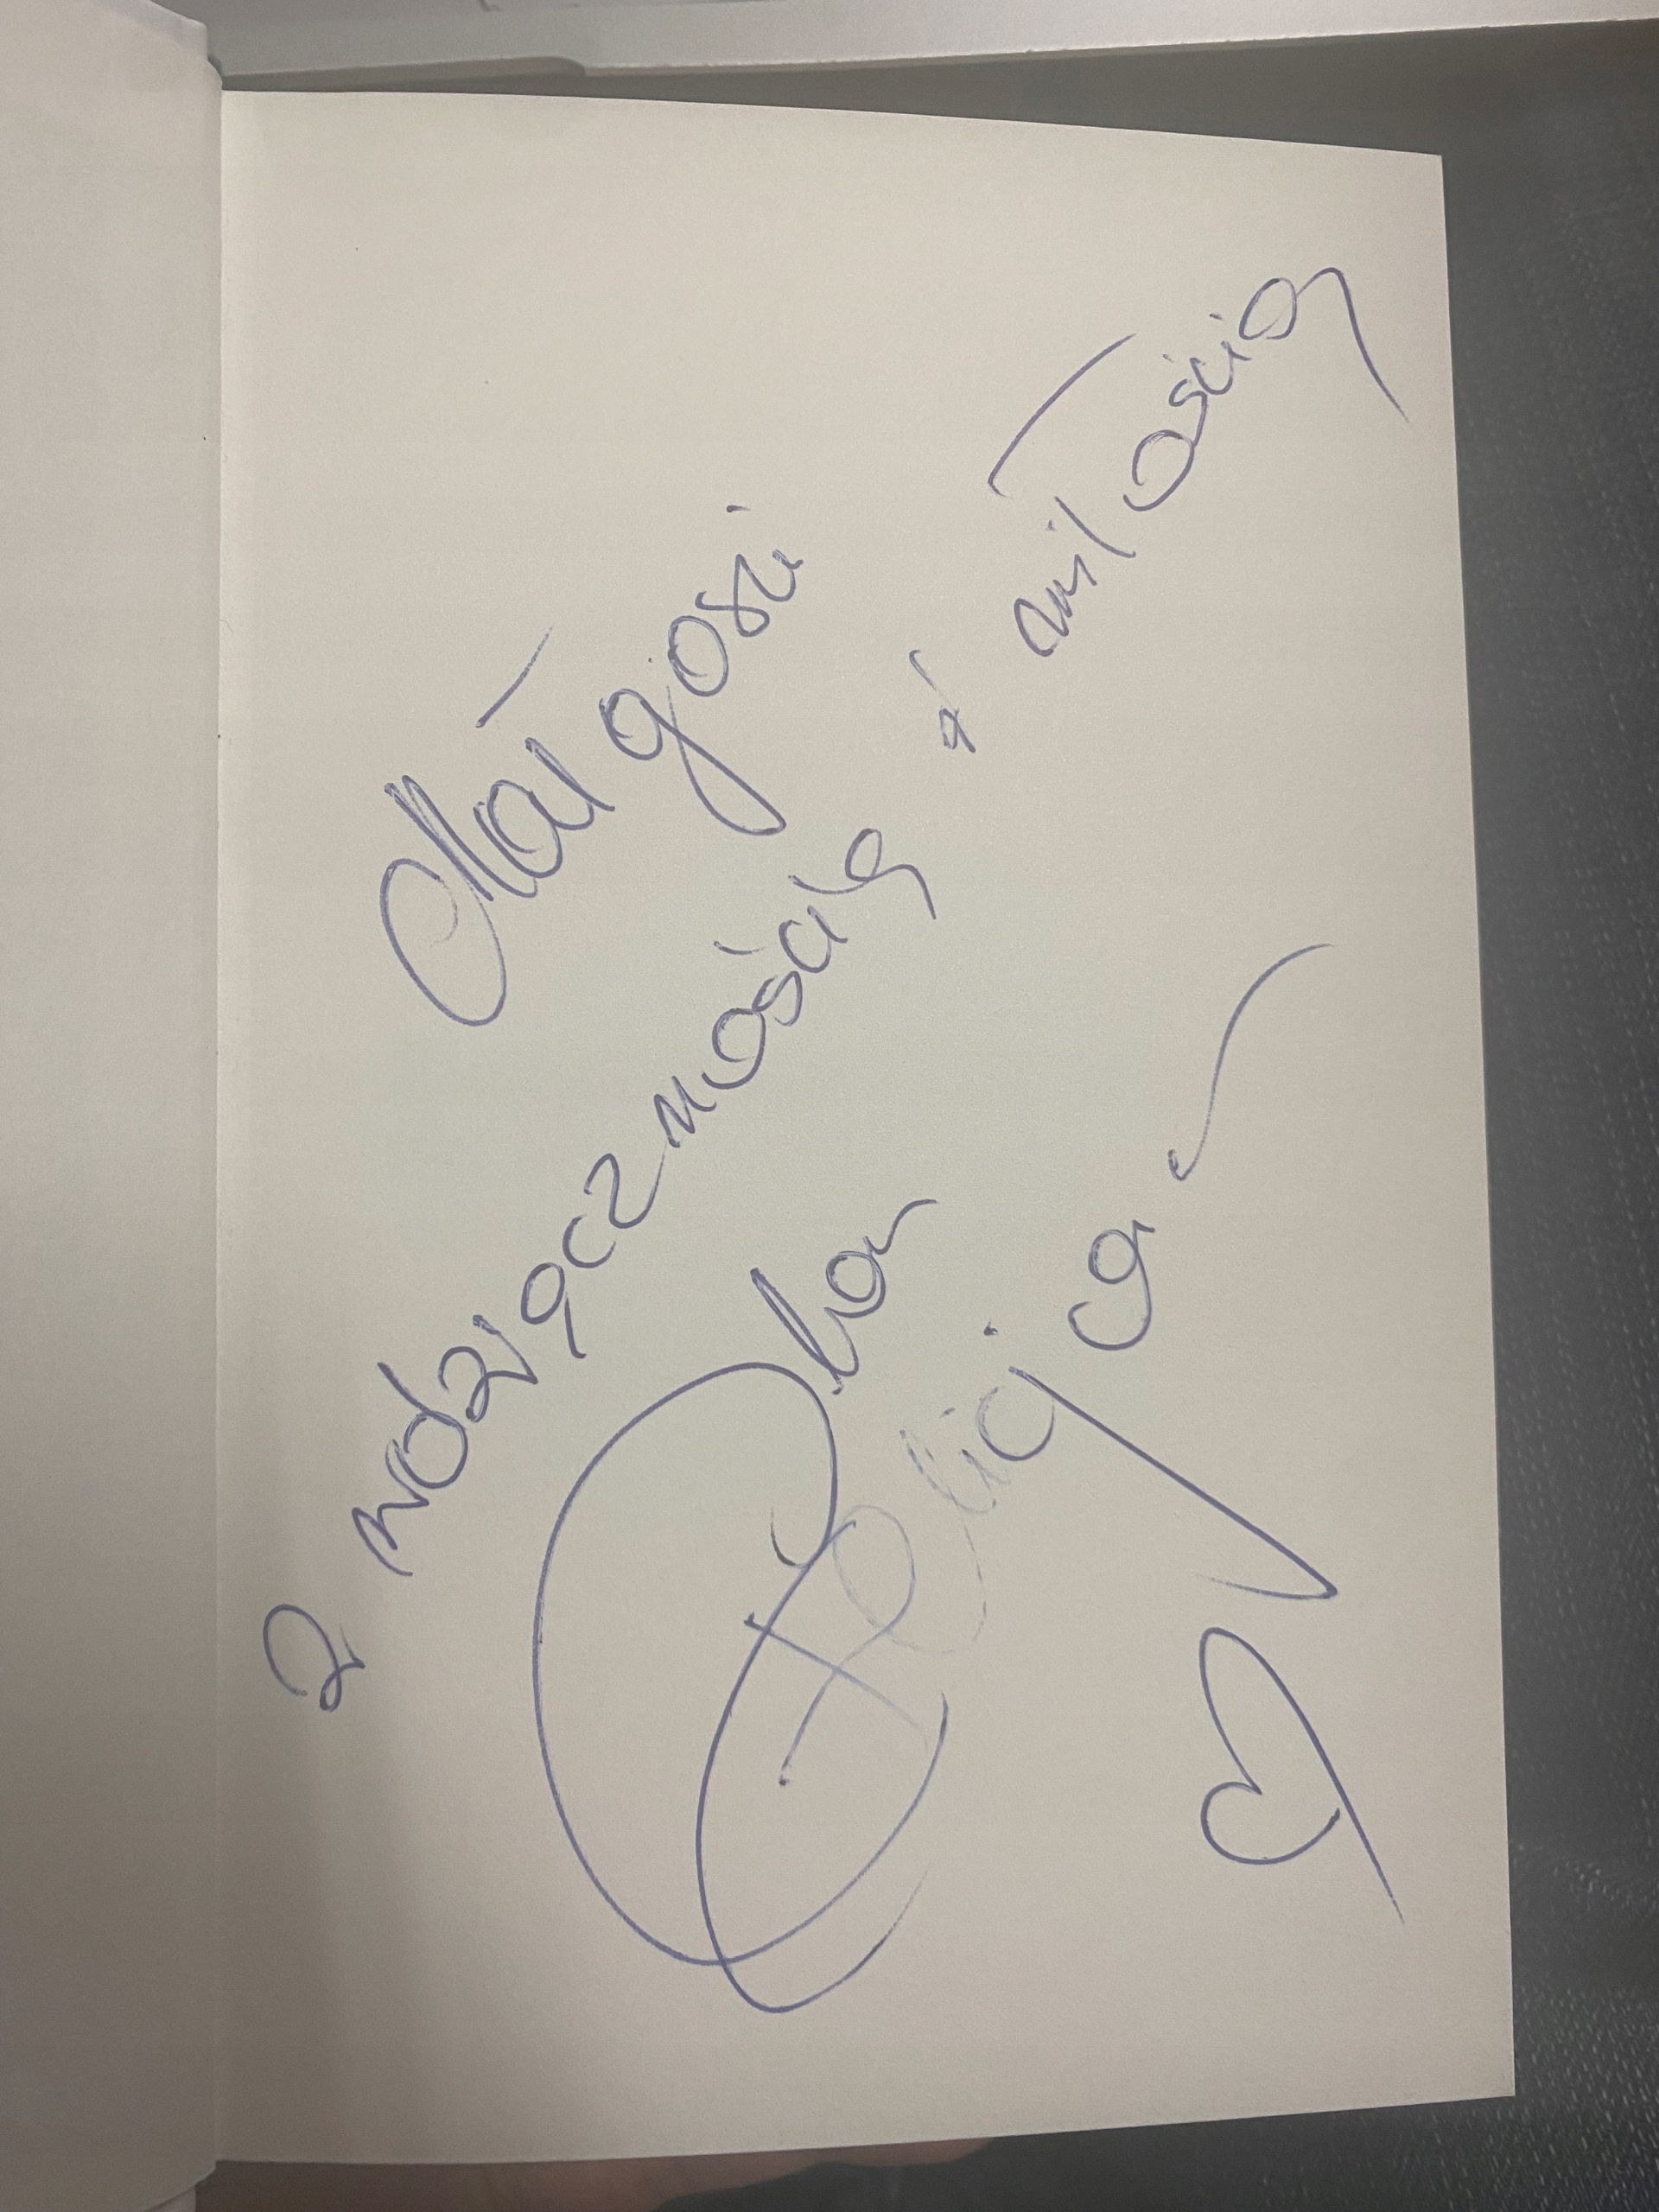 Małgosi
z wdzięcznością i miłością
Felicja